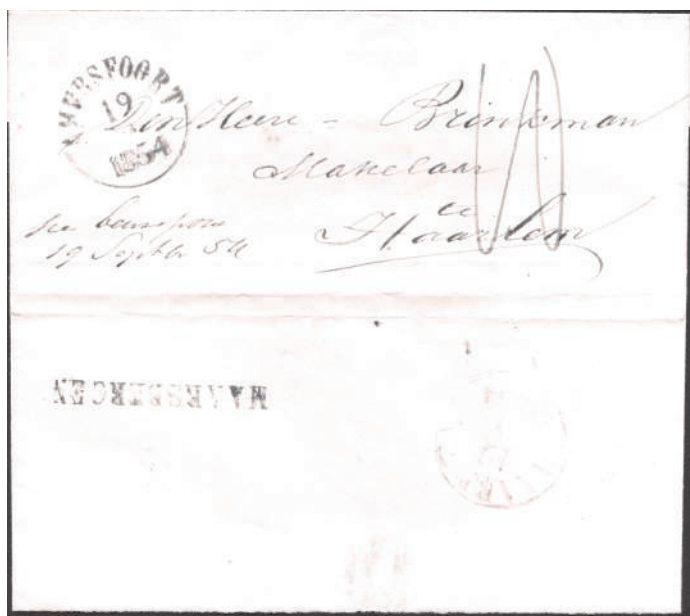 AMERSFOORT
19
1854
Den Heere - Brinkman
Makelaar
te
Haarlem
19 Septbr 54
MAARSBERGEN